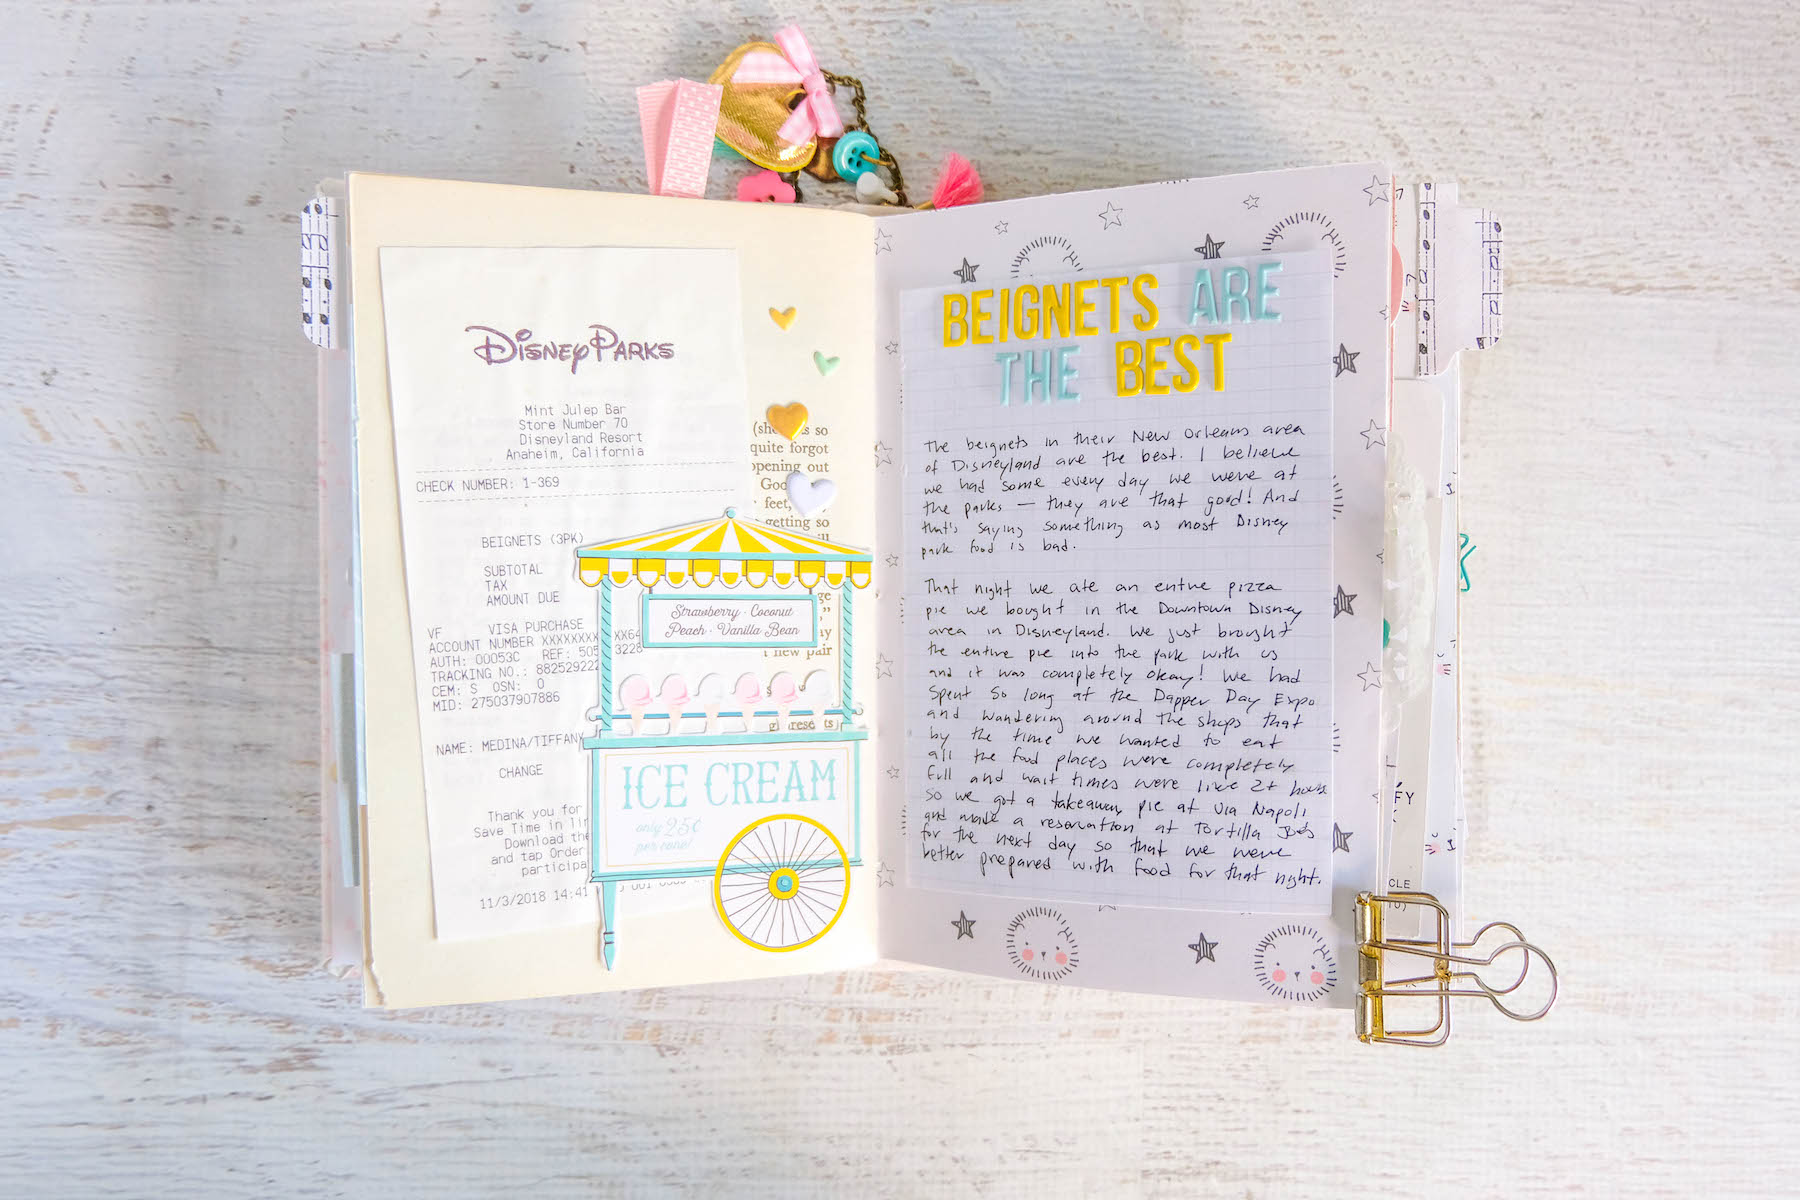 Disney Parks
Mint Julep Bar
Store Number 70
Disneyland Resort
Anaheim, California
CHECK NUMBER: 1-369
BEIGNETS (3PK)
SUBTOTAL
TAX
AMOUNT DUE
VF VISA PURCHASE
ACCOUNT NUMBER
AUTH: 00053C REF:
TRACKING NO.:
CEM: S OSN: 0
MID: 275037907886
NAME: MEDINA/TIFFANY
CHANGE
Thank you for
Save Time in
Download
and tap Order
11/3/2018 14:41
so
quite forgot
out
feet,
getting so
new pair
Strawberry · Coconut
Peach · Vanilla Bean
ICE CREAM
only 25¢
per cone!
BEIGNETS ARE
THE BEST
The beignets in their New Orleans area
of Disneyland are the best. I believe
we had some every day we were at
the parks — they are that good! And
that's saying something as most Disney
park food is bad.
That night we ate an entire pizza
pie we bought in the Downtown Disney
area in Disneyland. We just brought
the entire pie into the park with us
and it was completely okay! We had
spent so long at the Dapper Day Expo
and wandering around the shops that
by the time we wanted to eat
all the food places were completely
full and wait times were like 2+ hours
so we got a takeaway pie at Via Napoli
and made a reservation at Tortilla Jo's
for the next day so that we were
better prepared with food for that night.
FY
CLE